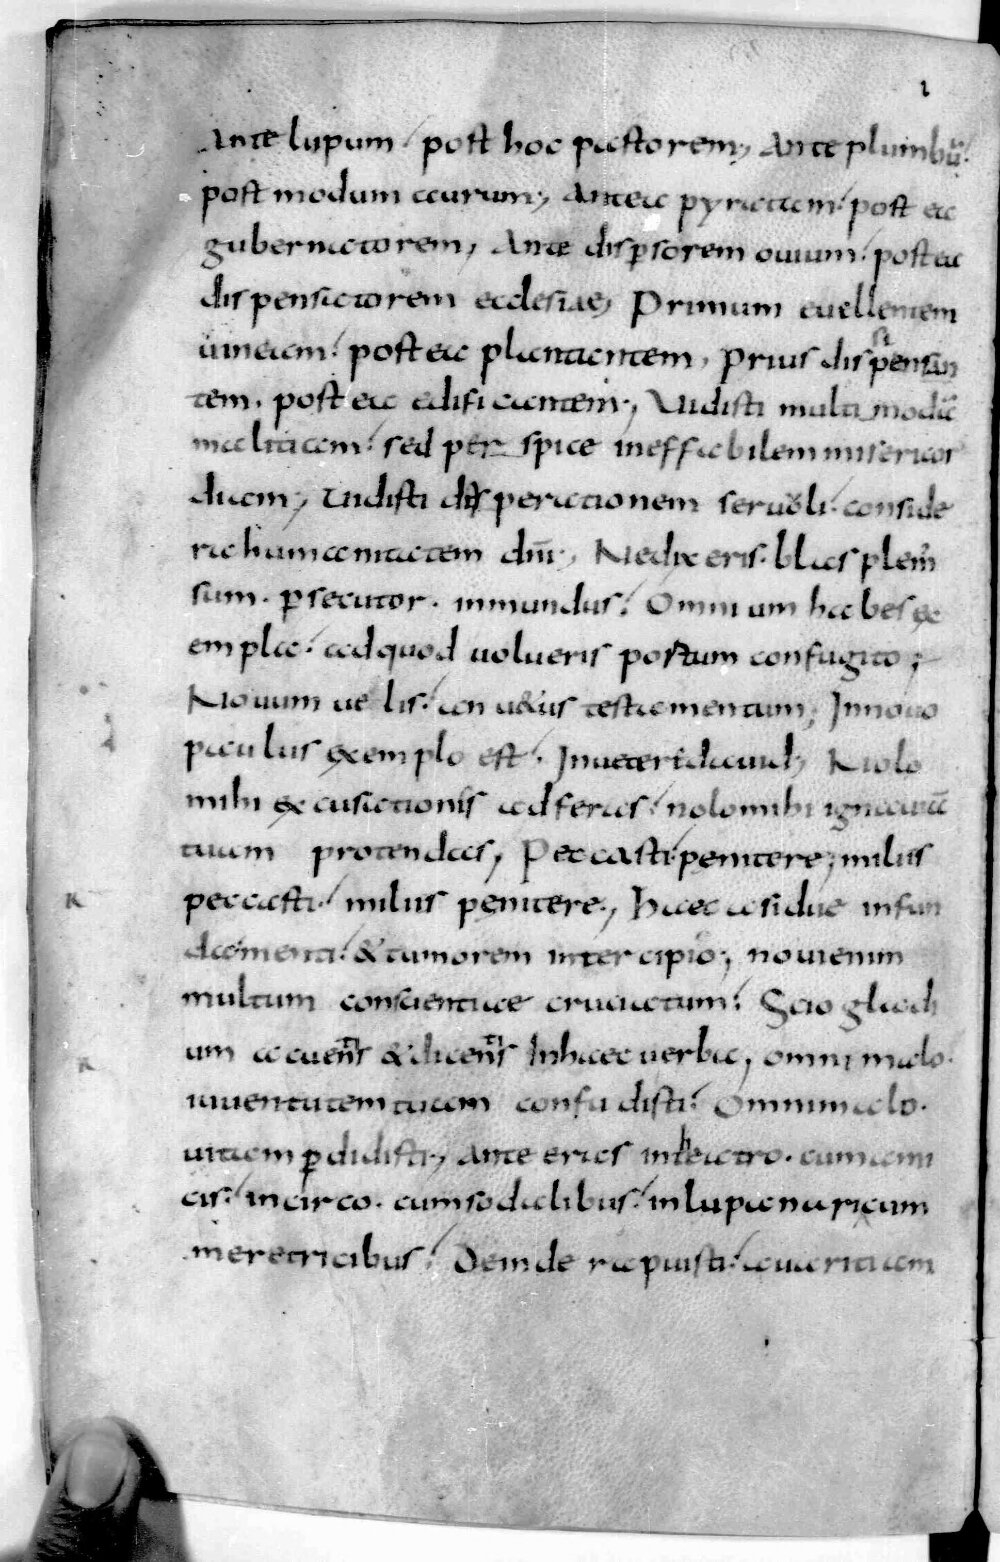 1
Ante lupum. post hoc pastorem; Ante plumbū.
post modum aurum; Antea pyratam. post ea
gubernatorem; Ante disp̱sorem ouium. postea
dispensatorem ecclesiae; Primum euellentem
uineam. postea plantantem; prius dispensan
tem. postea edificantem; Uidisti multimodā
malitiam. sed perspice ineffabilem misericor
diam; Uidisti disperationem seruoli. conside
ra humanitatem dn̄i; Ne dixeris. blasplem̄
sum. p̱secutor. inmundus. Omnium habes ex
empla. ad quod uolueris portum confugito;
Nouum uelis. an uetus testamentum; In nouo
paulus exemplo est. In ueteri dauid; Nolo
mihi excusationis adferas. nolo mihi ignauiā
tuam protendas; Peccasti penitere; milius
peccasti. milius penitere; Haec asidue infun
da menti. & tumorem intercipio; noui enim
multum conscientiae cruciatum. Scio gladi
um acuen̄s & dicen̄s In haec uerba; omni malo.
iuuentutem tuam confudisti. Omnium alo.
uitam p̱didisti; Ante eras in theatro. cum ami
cis. in circo. cum sodalibus. in lupanari cum
meretricibus. Deinde rapuisti. auaritiam